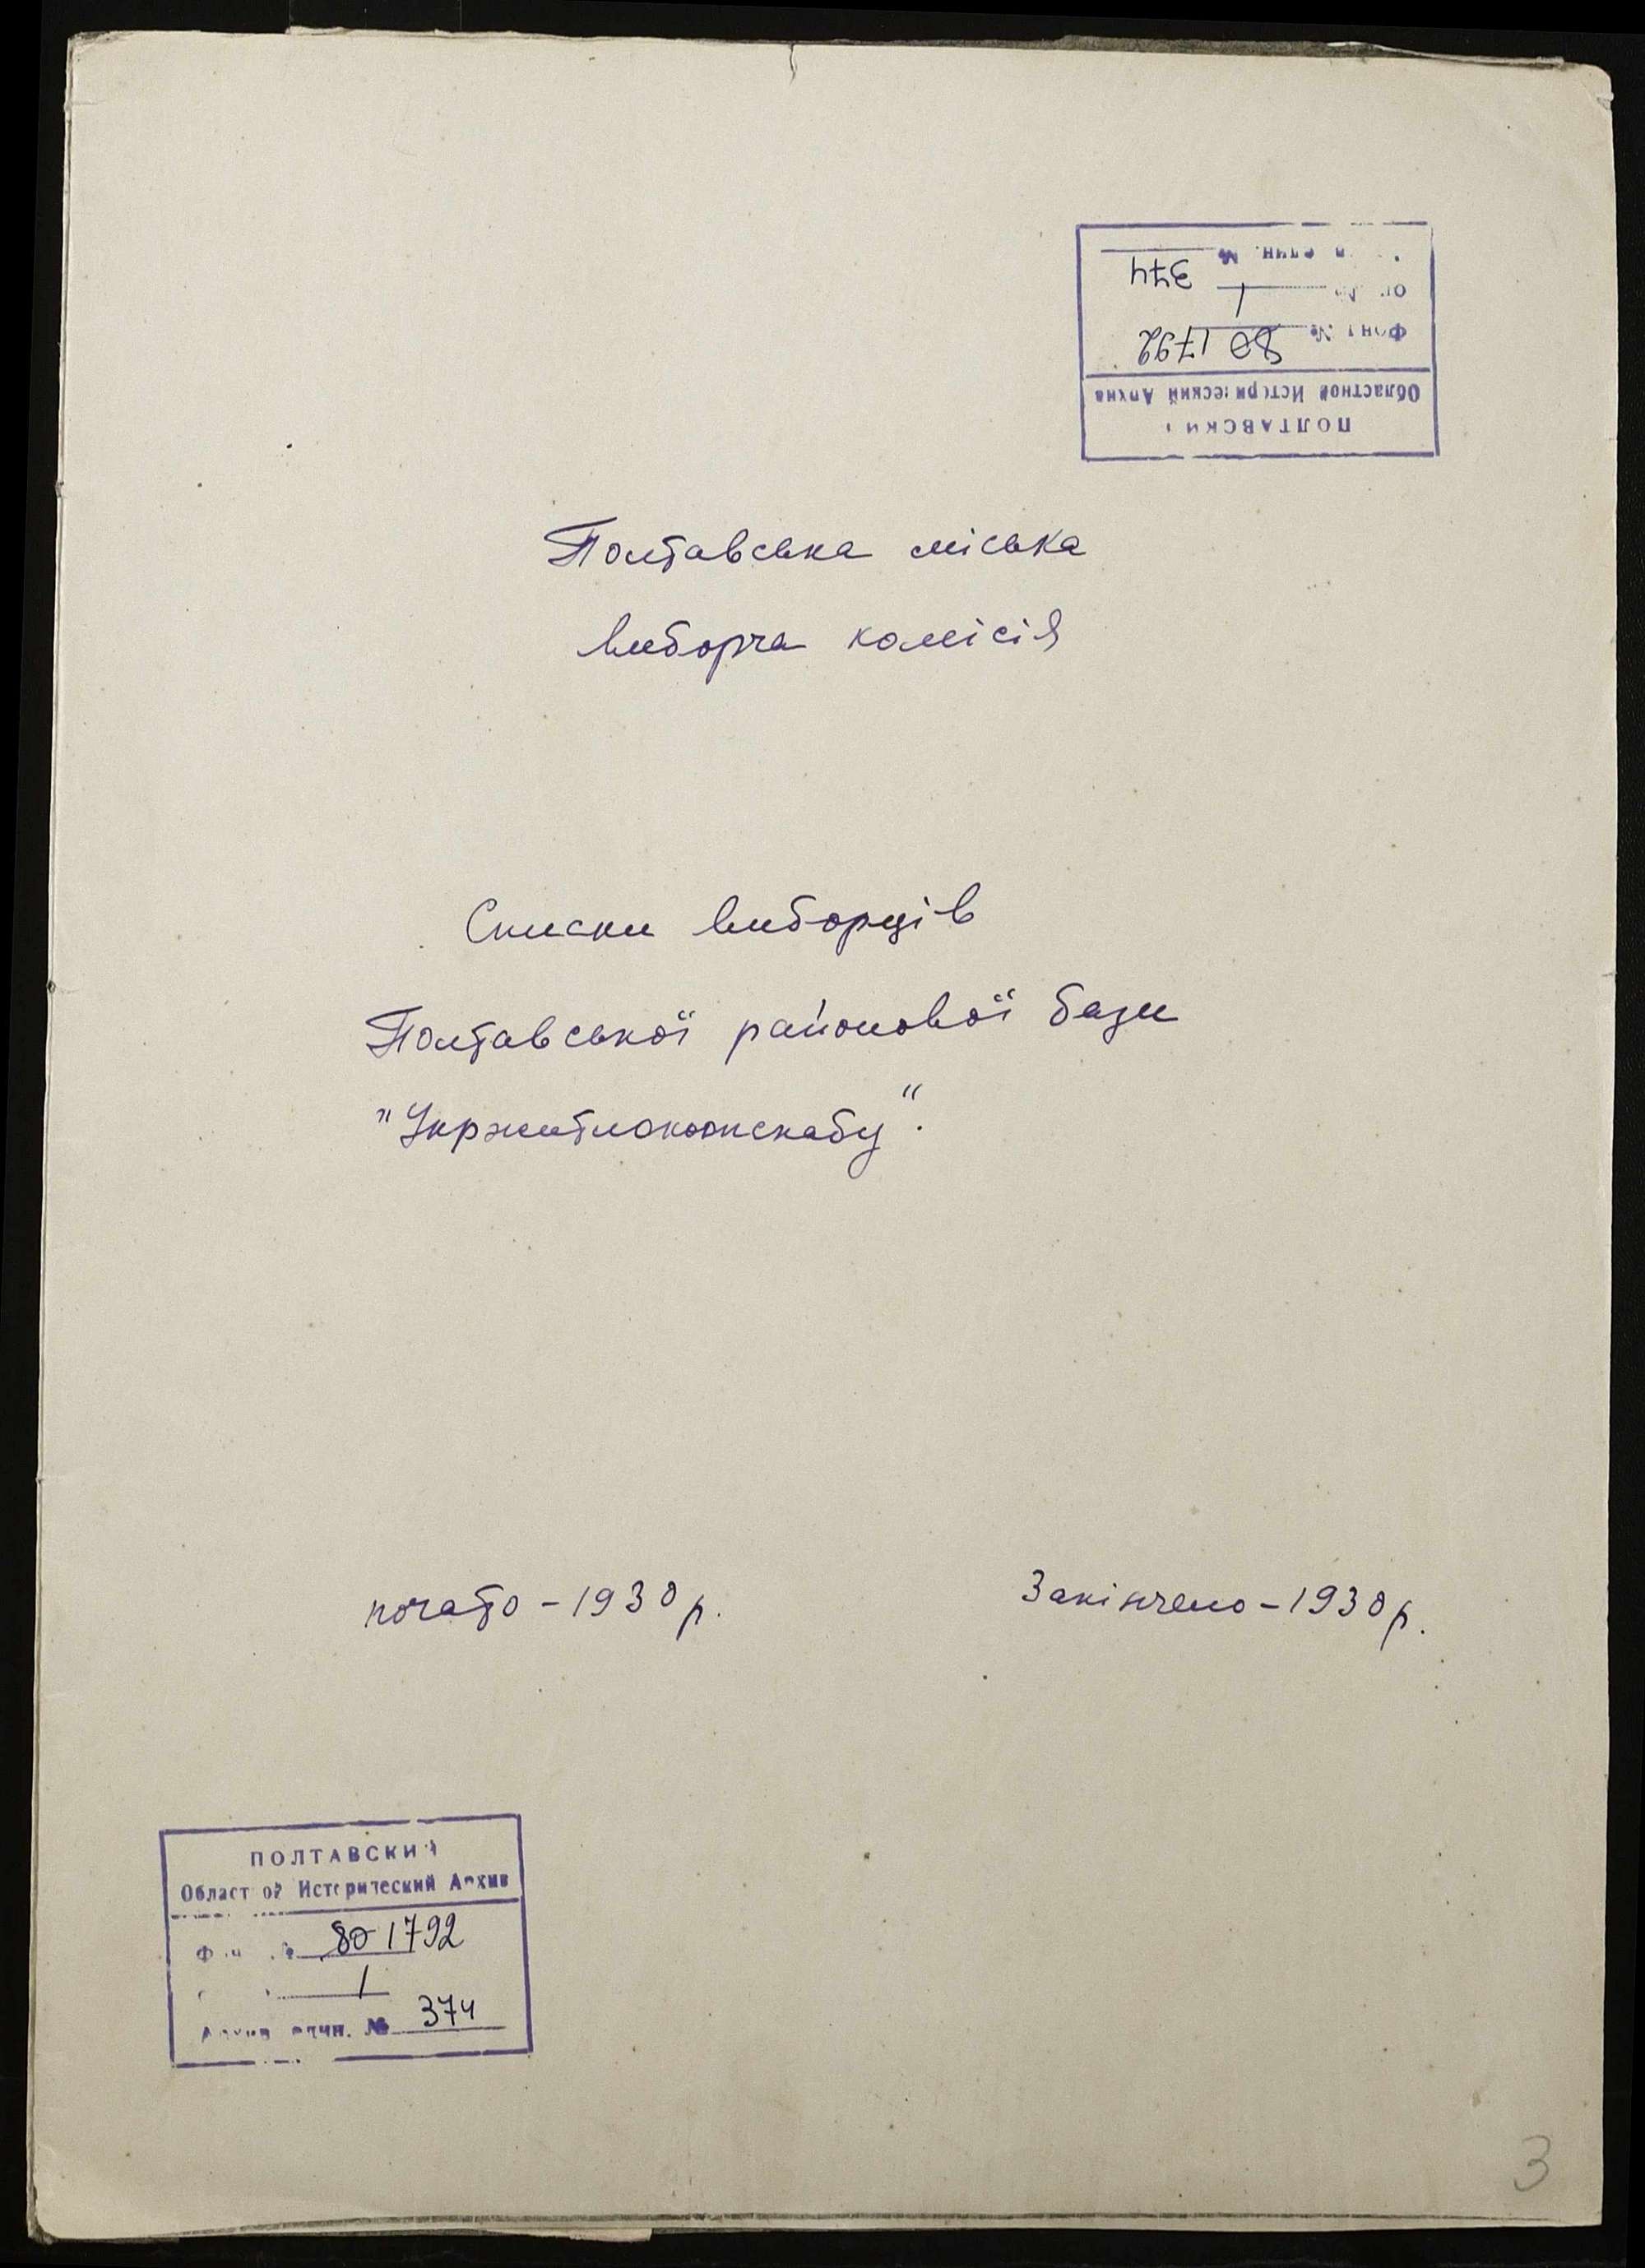 ПОЛТАВСКИЙ
Областной Исторический Архив
Фонд № 80 1792
оп. № 1
един. № 374
Полтавська міська
виборча комісія
Списки виборців
Полтавської районової бази
"Укржитлокоопснабу".
почато - 1930 р.
Закінчено - 1930 р.
ПОЛТАВСКИЙ
Областной Исторический Архив
Фонд № 80 1792
1
Архив един. № 374
3